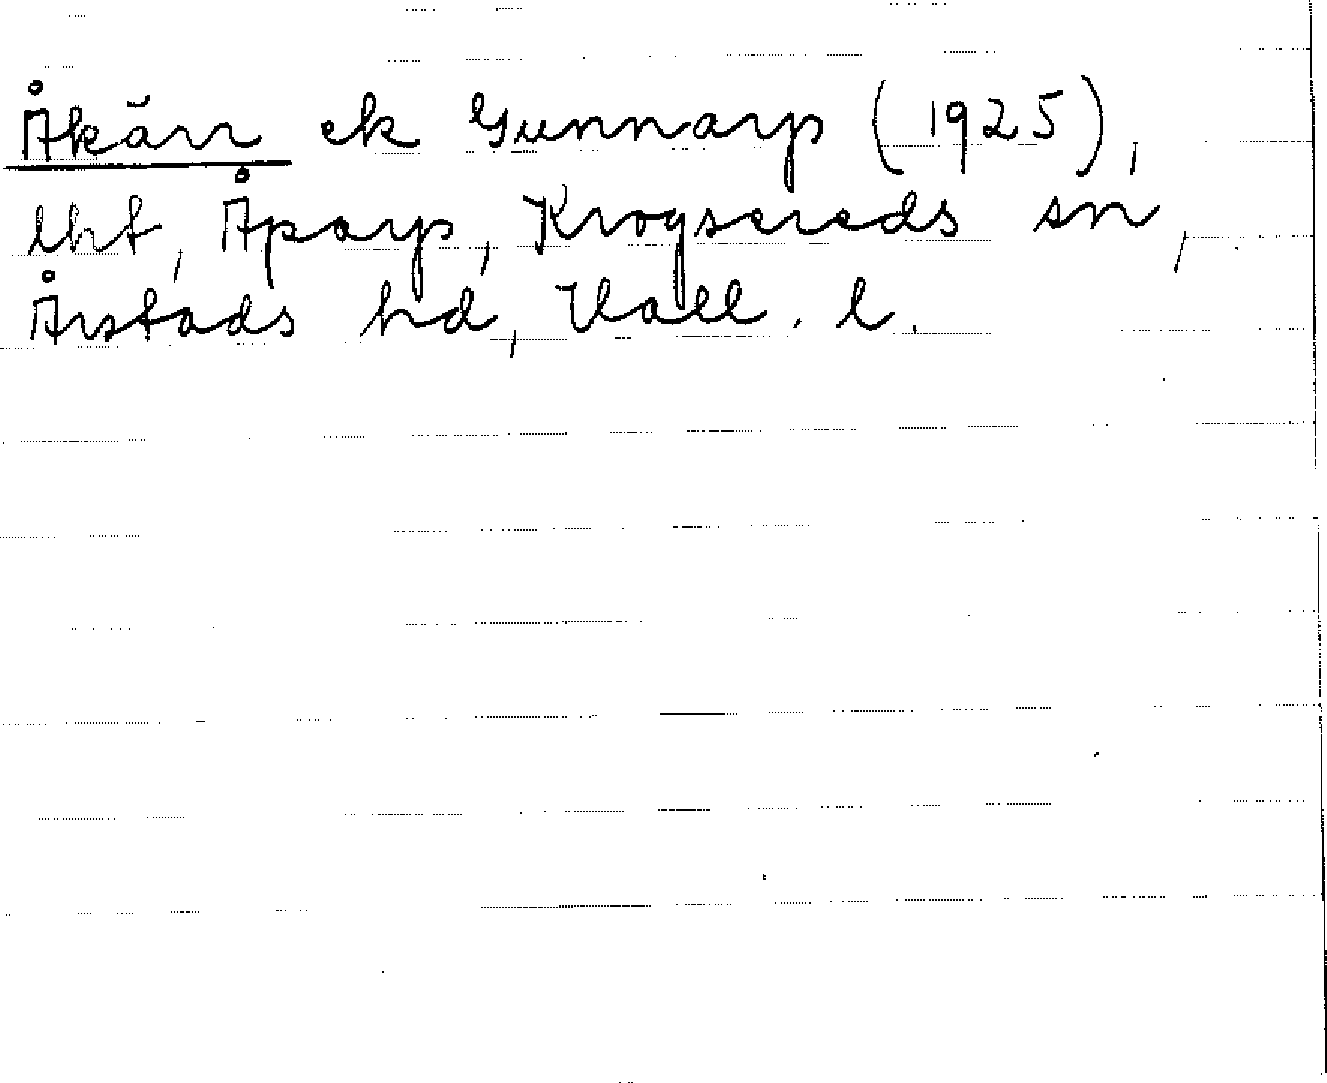 Åkärr ek Gunnarp (1925),
lht, Åparp, Krogsereds sn,
Årstads hd, Hall. l.